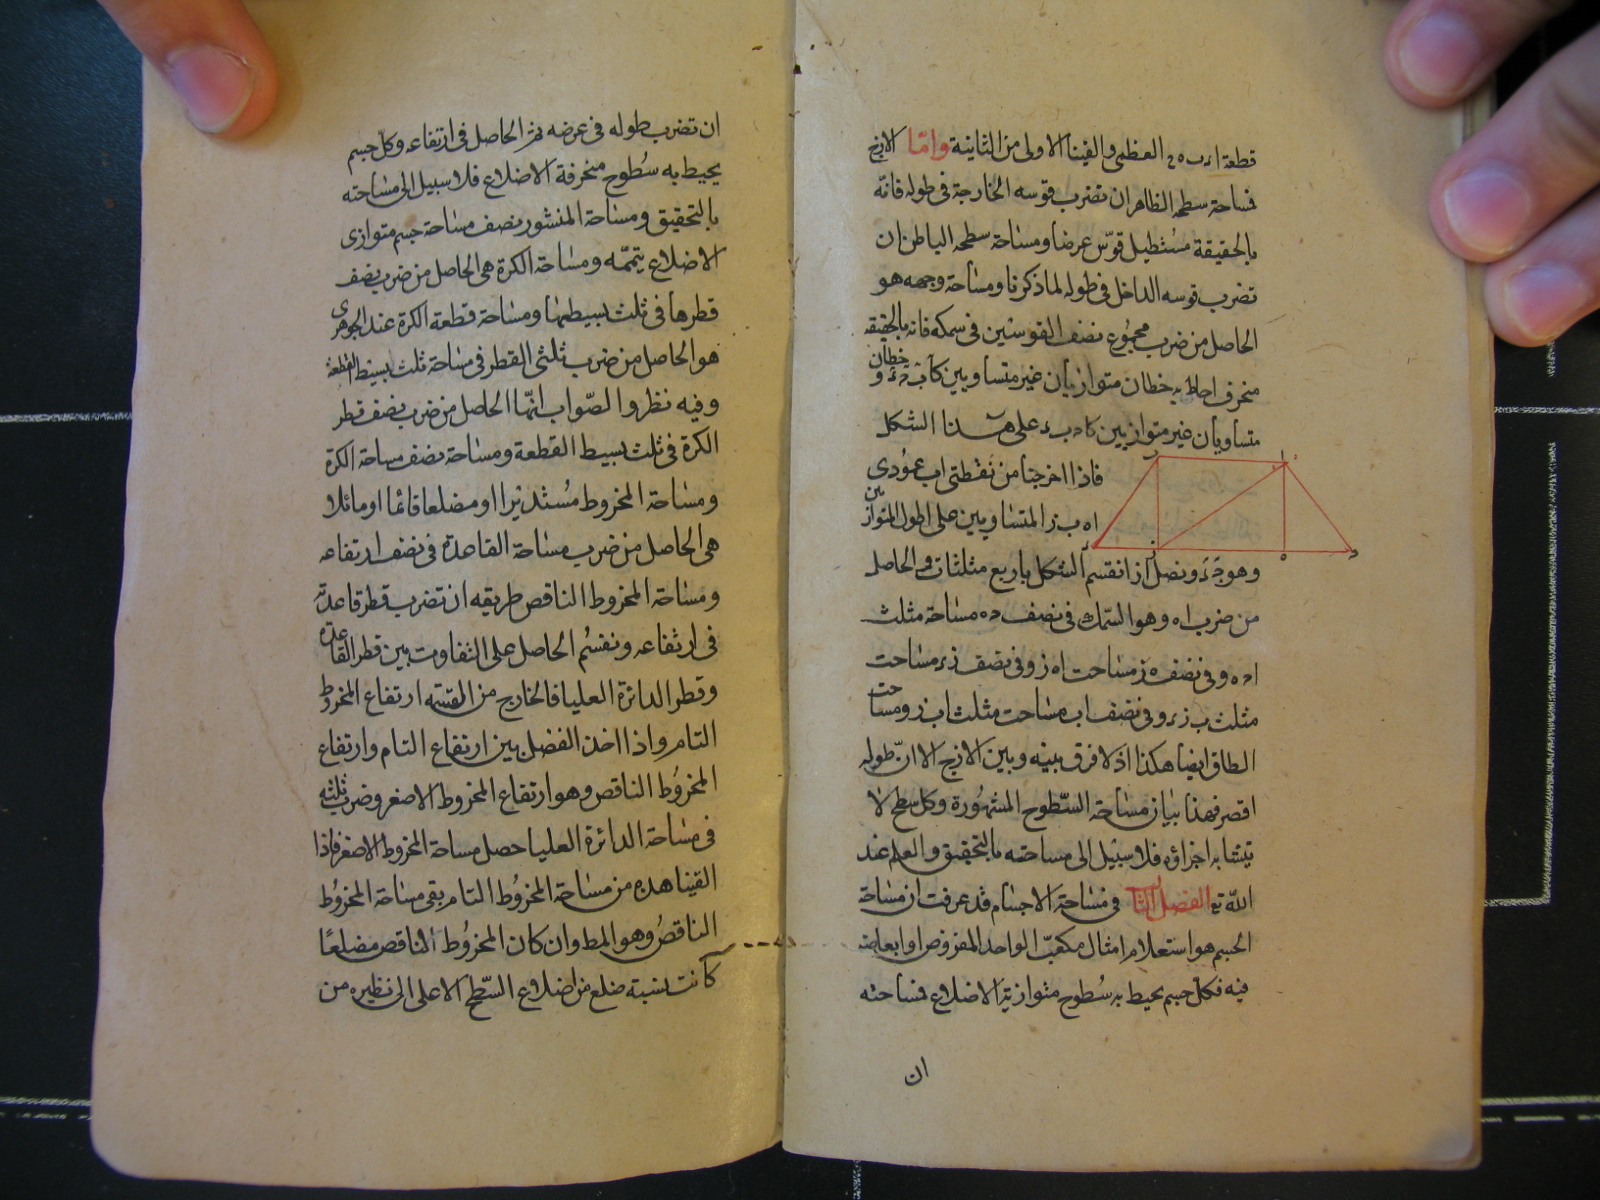 قطعة ا ر ب ه ح العظمى والقينا الاولى من الثانية واما الازج
فمساحة سطحه الظاهر ان تضرب قوسه الخارجة فى طوله فانه
بالحقيقة مستطيل قوّس عرضا ومساحة سطحه الباطن ان
تضرب قوسه الداخل فى طوله لما ذكرنا ومساحة وجهه هو
الحاصل من ضرب مجموع نصف القوسين فى سمكه فانه بالحقيقه
منحرف احاط به خطان متوازيان غير متساويين كاب حء و خطان
متساويان غير متوازيين كاح بء على هذا الشكل
فاذا اخرجنا من نقطتى اب عمودى
اه ب ز المتساويين على اطول المتوازيين
وهو حء ونصل از انقسم الشكل باربع مثلثات والحاصل
من ضرب اه وهو السمك فى نصف حه مساحة مثلث
احه وفى نصف ه ز مساحت اه ز وفى نصف زء مساحت
مثلث ب زء وفى نصف اب مساحت مثلث اب ز ومساحت
الطاق ايضا هكذا اذ لا فرق بينه وبين الازج الا انّ طوله
اقصر فهذا بيان مساحة السّطوح المشهورة وكل سطح لا
يتشابه اجزاؤه فلا سبيل الى مساحته بالتحقيق والعلم عند
اللّه تع الفصل الثا فى مساحة الاجسام قد عرفت ان مساحة
الجسم هو استعلام امثال مكعبّ الواحد المفروض او ابعاضه
فيه فكل جسم يحيط به سُطوح متوازية الاضلاع فمساحته
ان
ان تضرب طوله فى عرضه ثم الحاصل فى ارتفاعه وكل جسم
يحيط به سُطوح منحرفة الاضلاع فلا سبيل الى مساحته
بالتحقيق ومساحة المنشور نصف مساحة جسم متوازى
الاضلاع يتممّه ومساحة الكرة هى الحاصل من ضرب نصف
قطرها فى ثلث بسيطها ومساحة قطعة الكرة عند الجوهرى
هو الحاصل من ضرب ثلثى القطر فى مساحة ثلث بسيط القطعة
وفيه نظر والصّواب انمّا الحاصل من ضرب نصف قطر
الكرة فى ثلث بسيط القطعة ومساحة نصف مساحة الكرة
ومساحة المخروط مُستديرا او مضلعا قائما او مائلا
هى الحاصل من ضرب مساحة القاعدة فى نصف ارتفاعه
ومساحة المخروط الناقص طريقه ان تضرب قطر قاعدته
فى ارتفاعه ونقسُم الحاصل على التفاوت بين قطر القاعدة
وقطر الدائرة العليا فالخارج من القسمة ارتفاع المخروط
التام واذا اخذ الفضل بين ارتفاع التام وارتفاع
المخروُط الناقص وهو ارتفاع المخروط الاصغر وضرب ثلثه
فى مساحة الدائرة العليا حصل مساحة المخروط الاصغر فاذا
القينا هذه من مساحة المخروُط التام بقى مساحة المخروُط
الناقصُ وهو المط وان كان المخروُط الناقص مضلعًا
كانت نسبة ضلع من اضلاع السّطح الاعلى الى نظيره من